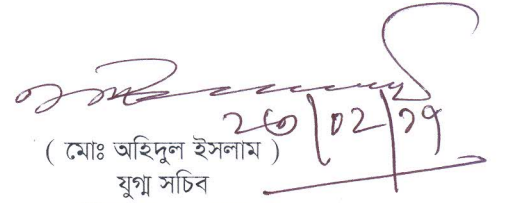 ২৩/০২/১৭
( মোঃ অহিদুল ইসলাম )
যুগ্ম সচিব